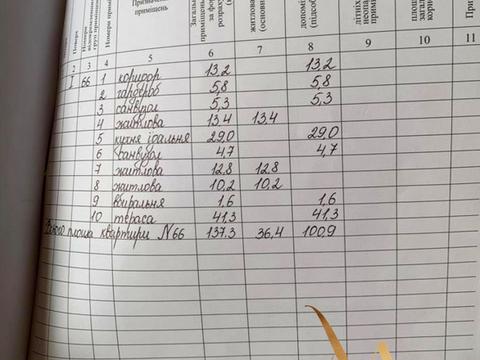 Номери
Номери приміщень
Призначення
приміщень
Загальна
приміщень
за фор
розраху
житлова
(основн
допомі
(підсоб
площ
загал
корис
При
2 3 4 5 6 7 8 9 10 11
I 66 1 коридор 13,2 13,2
2 гардероб 5,8 5,8
3 санвузол 5,3 5,3
4 житлова 13.4 13.4
5 кухня їдальня 29,0 29,0
6 санвузол 4,7 4,7
7 житлова 12.8 12.8
8 житлова 10,2 10,2
9 вбиральня 1,6 1,6
10 тераса 41,3 41,3
площа квартири N66 137.3 36,4 100,9